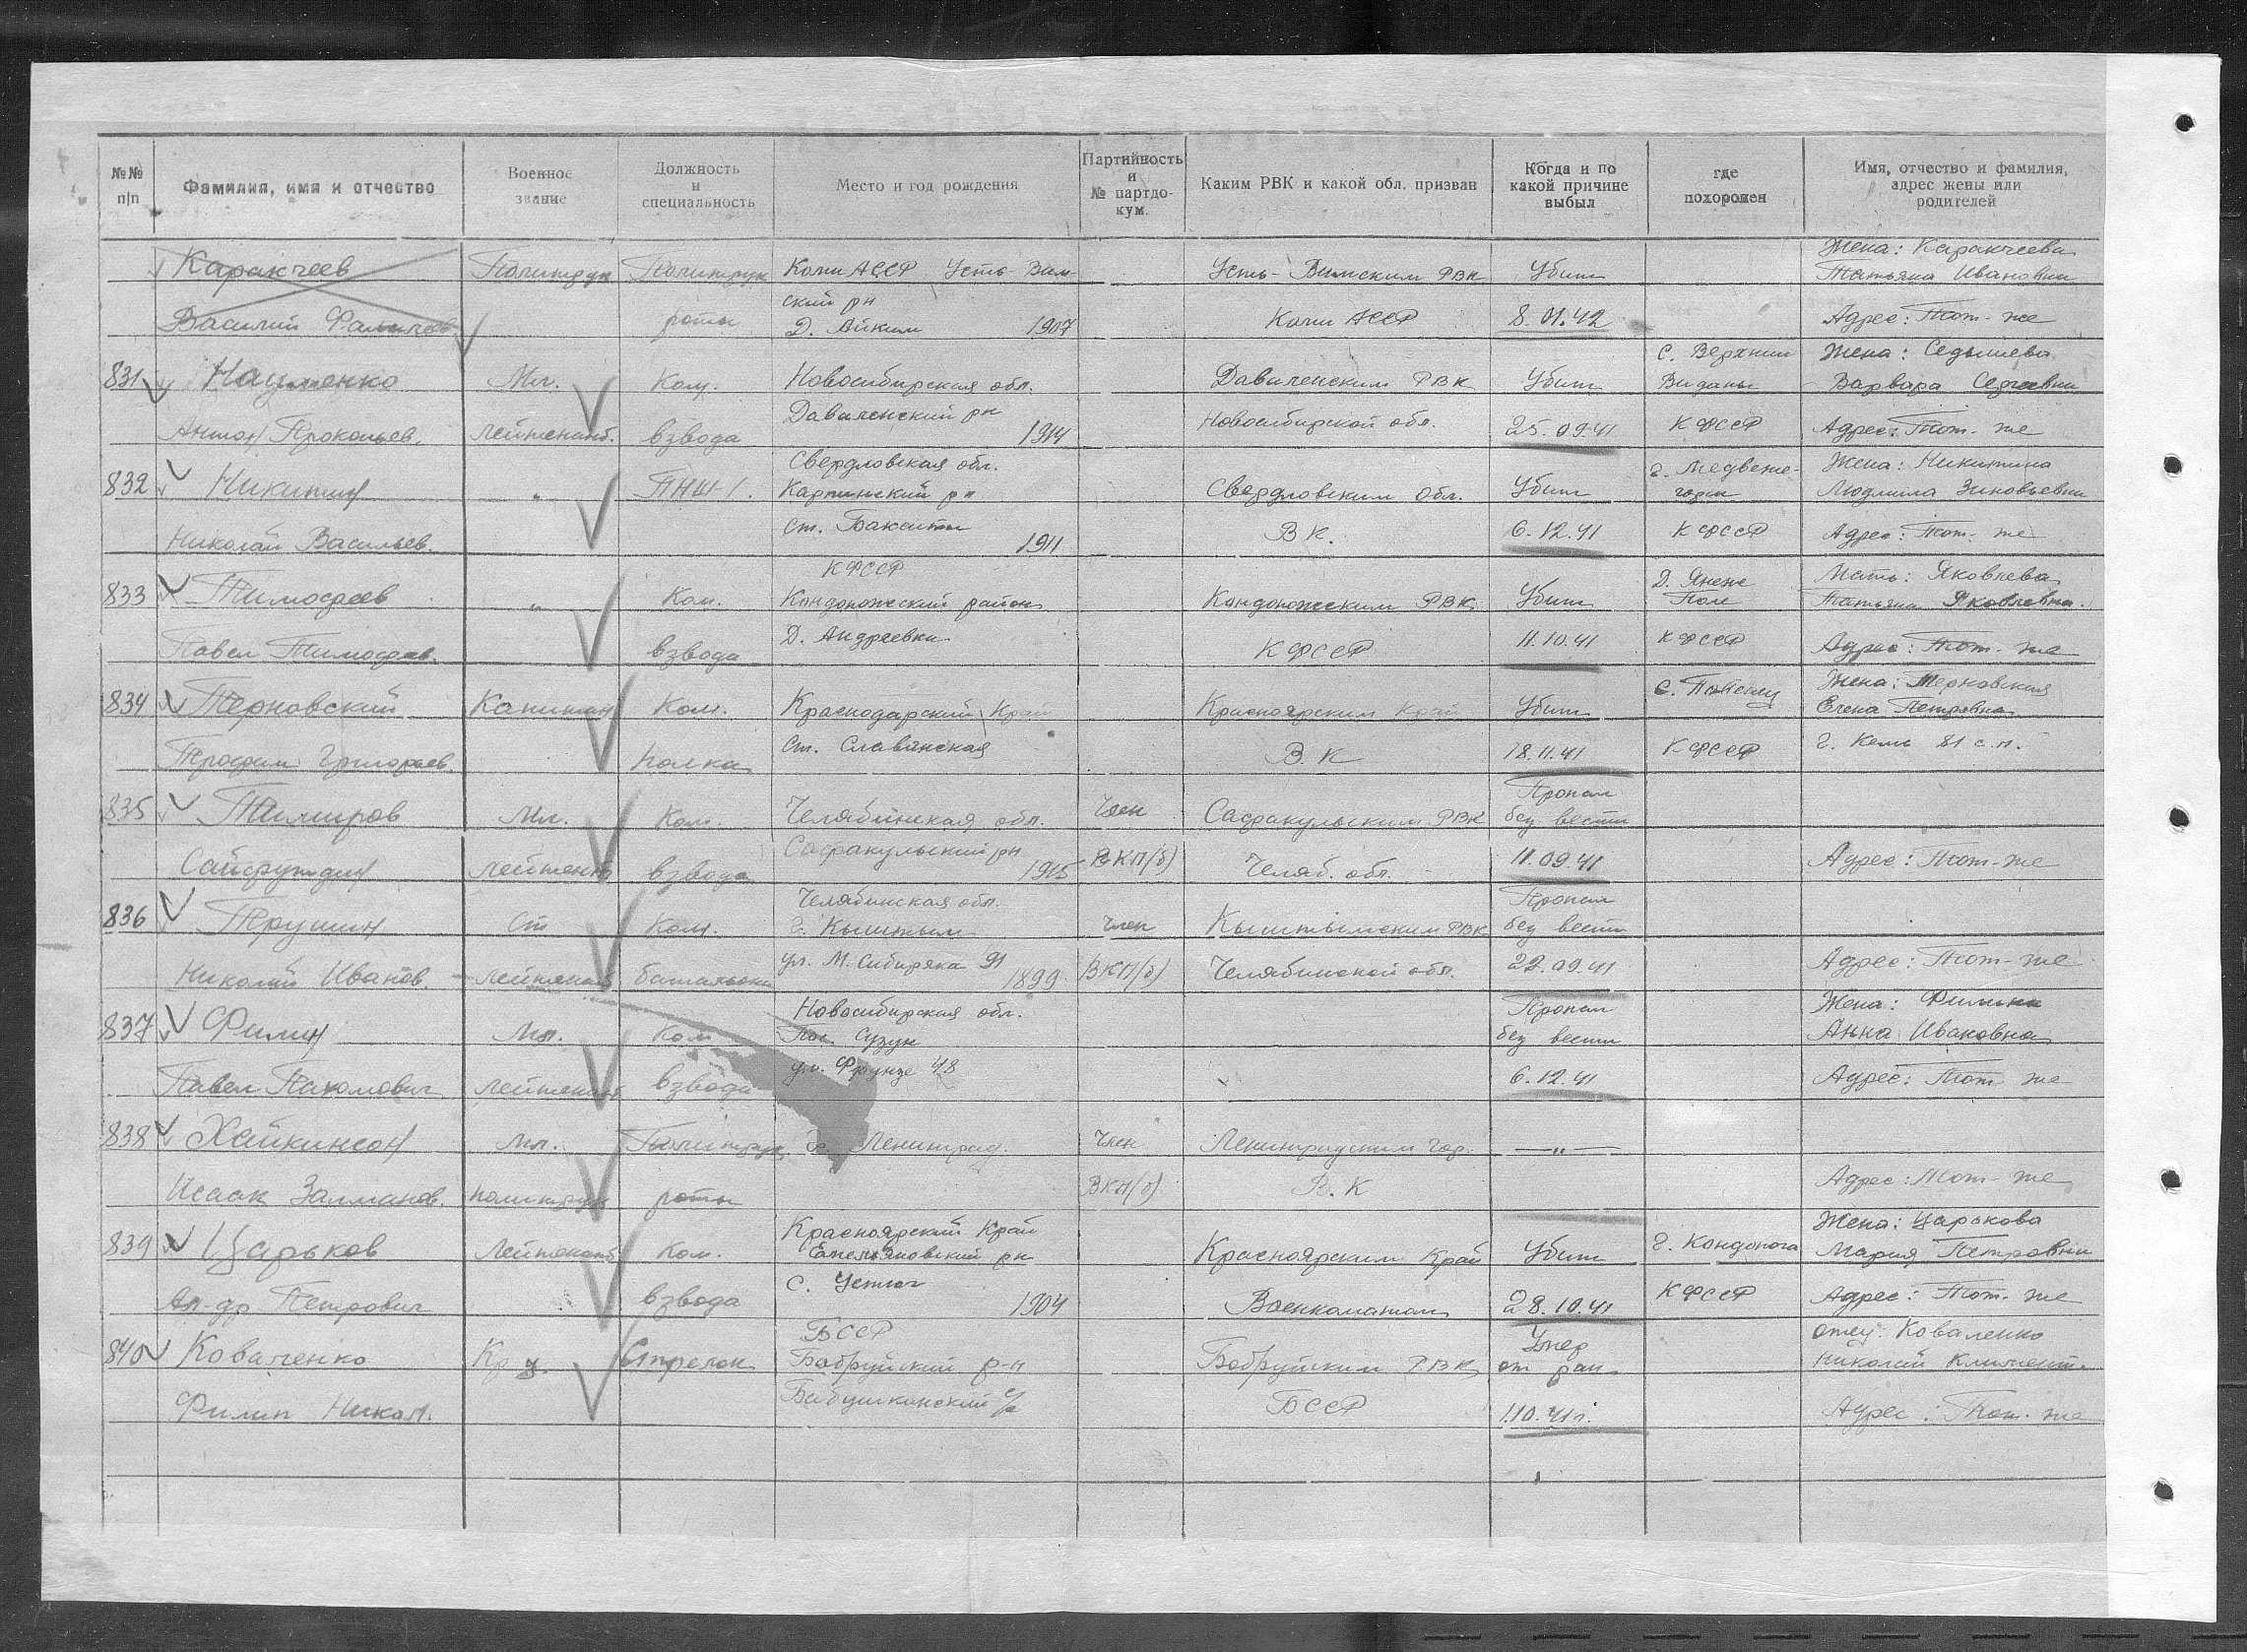 №№ п|п
Фамилия, имя и отчество
Военное звание
Должность и специальность
Место и год рождения
Партийность и № партдокум.
Каким РВК и какой обл. призван
Когда и по какой причине выбыл
где похоронен
Имя, отчество и фамилия, адрес жены или родителей
Каракчеев Политрук Политрук Коми АССР Усть-Вым- Усть-Вымским РВК Убит Жена: Каракчеева Татьяна Ивановна
ский рн
Василий роты Д. Айкин 1907 Коми АССР 8.01.42 Адрес: Тот-же
831 Науменко Мл. Ком. Новосибирская обл. РВК Убит с. Верхние Виданы Жена: Седышева Варвара Сергеевна
Антон Прокопьев. лейтенант. взвода рн 1914 Новосибирской обл. 25.09.41 КФССР Адрес: Тот-же
832 Никитин " ПНШ-1. Свердловская обл. Карпинский рн Свердловским Обл. Убит г. Медвеже-горск Жена: Никитина Людмила Зиновьевна
Николай Васильев. ст. 1911 ВК. 6.12.41 КФССР Адрес: Тот-же
833 Тимофеев " Ком. КФССР Кондопожский район Кондопожским РВК Убит Д. Поле Мать: Яковлева Татьяна Яковлевна.
Павел Тимофеев. взвода Д. Андреевка КФССР 11.10.41 КФССР Адрес: Тот-же
834 Терновский Капитан Ком. Краснодарский Край Красноярским Край Убит с. Жена: Терновская Елена Петровна
Трофим Григорьев. полка Ст. Славянская В.К 18.11.41 КФССР г. Кемь 81 с.п.
835 Тимиров Мл. Ком. Челябинская обл. Член Сафакульским РВК Пропал без вести
Сайфутдин лейтенант взвода Сафакульский рн 1915 ВКП(б) Челяб. обл. 11.09.41 Адрес: Тот-же
836 Трушин Ст Ком. Челябинская обл. г. Кыштым Член Кыштымским РВК Пропал без вести
Николай Иванов. лейтенант батальона ул. М. Сибиряка 91 1899 ВКП(б) Челябинской обл. 22.09.41 Адрес: Тот-же
837 Филин Мл. Ком Новосибирская обл. Пос. Сузун Пропал без вести Жена: Филина Анна Ивановна
Павел Пахомович лейтенант взвода ул. Фрунзе 48 6.12.41 Адрес: Тот-же
838 Хайкинсон Мл. Политрук г. Ленинград. Член Ленинградским гор. —"—
Исаак Залманов. политрук роты ВКП(б) В.К Адрес: Тот-же
839 Царьков Лейтенант Ком. Красноярский Край Емельяновский рн Красноярским Край Убит г. Кондопога Жена: Царькова Мария Петровна
Ал-др Петрович взвода С. 1904 Военкоматом 28.10.41 КФССР Адрес: Тот-же
840 Коваленко Кр-ц. Стрелок БССР Бобруйский р-н Бобруйским РВК Умер от ран Отец: Коваленко Николай Климент.
Филип Никол. Бабушкинский с/с БССР 1.10.41г. Адрес: Тот-же